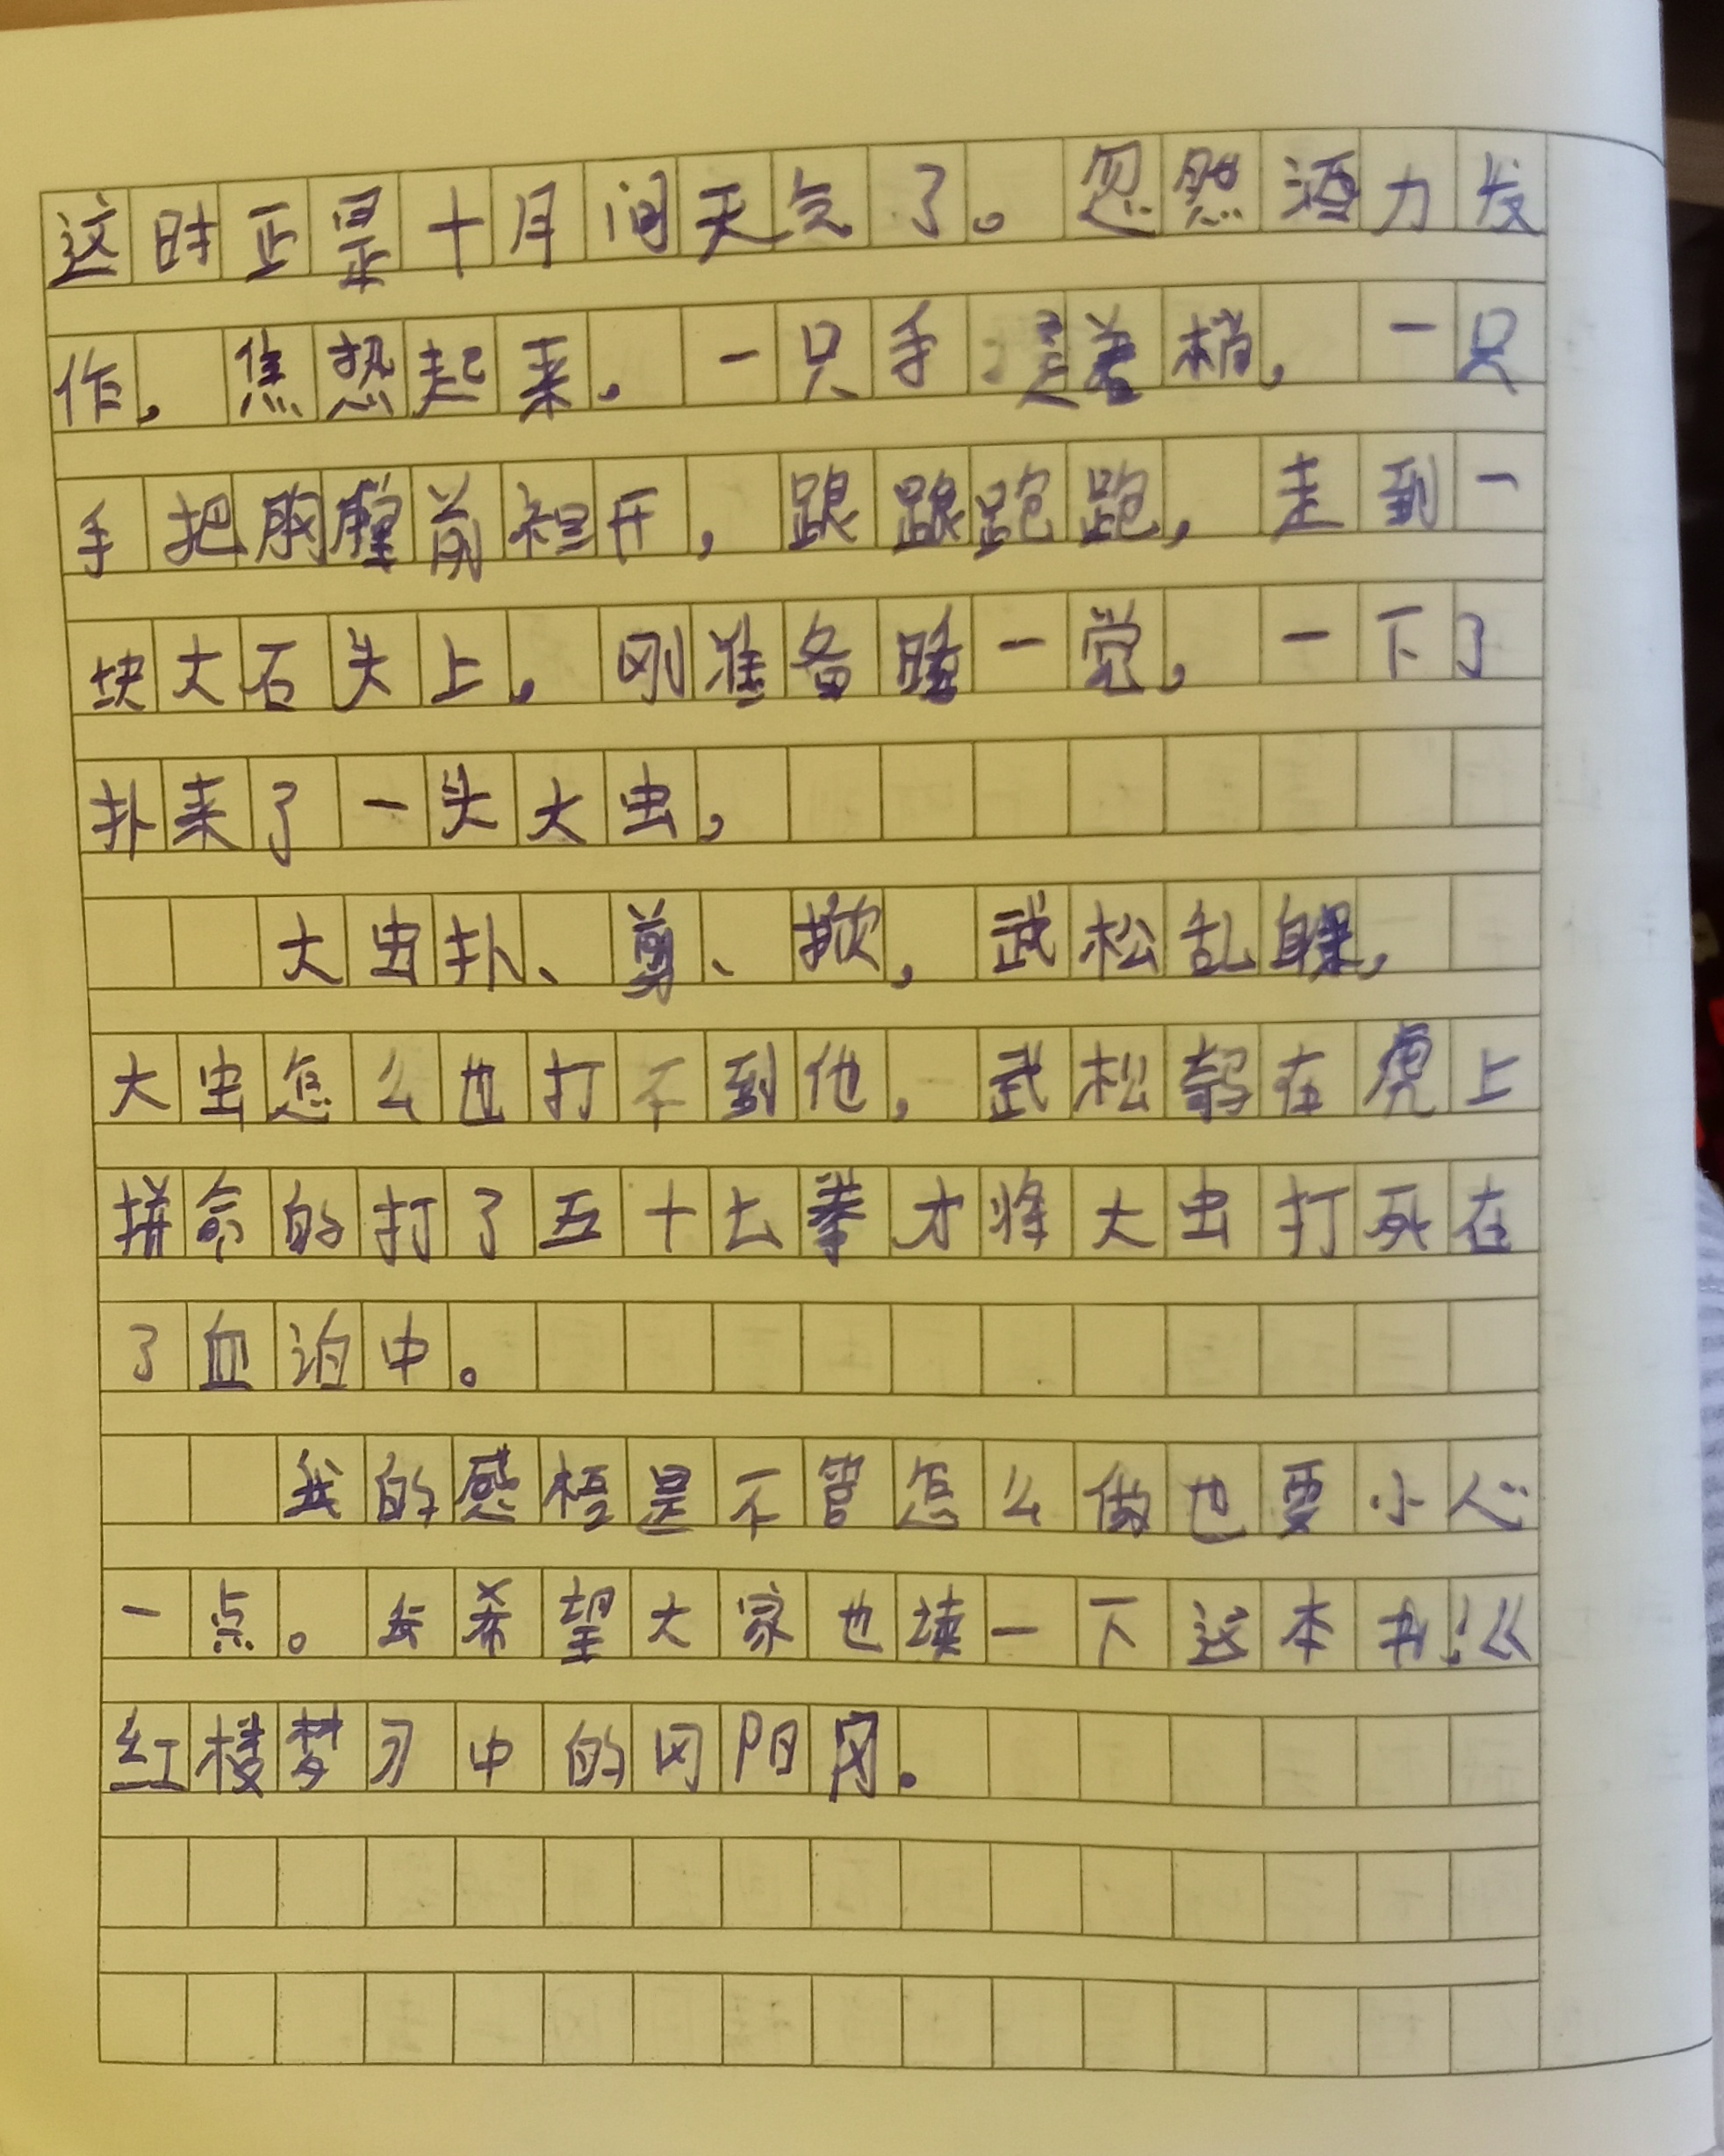 这时正是十月间天气了。忽然酒力发
作，焦热起来。一只手提着梢，一只
手把胸膛前袒开，踉踉跑跑，走到一
块大石头上，刚准备睡一觉，一下了
扑来了一头大虫，
大虫扑、剪、掀，武松乱躲，
大虫怎么也打不到他，武松骑在虎上
拼命的打了五十七拳才将大虫打死在
了血泊中。
我的感悟是不管怎么做也要小心
一点。我希望大家也读一下这本书！《
红楼梦》中的冈阳冈。